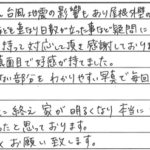 台風地震の影響もあり屋根外壁の
なども重なり日数が立った事など疑問に
持って対応して頂き感謝しておりま
真面目で好感が持てました。
ない部分をわかりやすい写真で毎回
に終え家が明るくなり本当に
ったと思っております。
お願い致します。